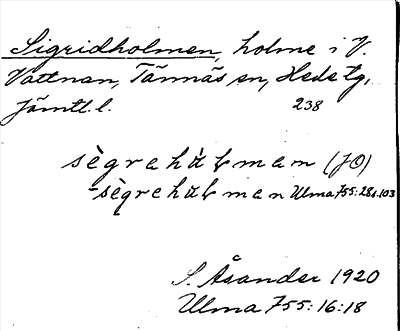 Sigridholmen, holme i V.
Vattnan, Tännäs sn, Hede tg,
Jämtl. l. 238
sègrehùɫmem (JO)
-sègrehùɫmen Ulma 755:28s.103
S. Åsander 1920
Ulma 755:16:18